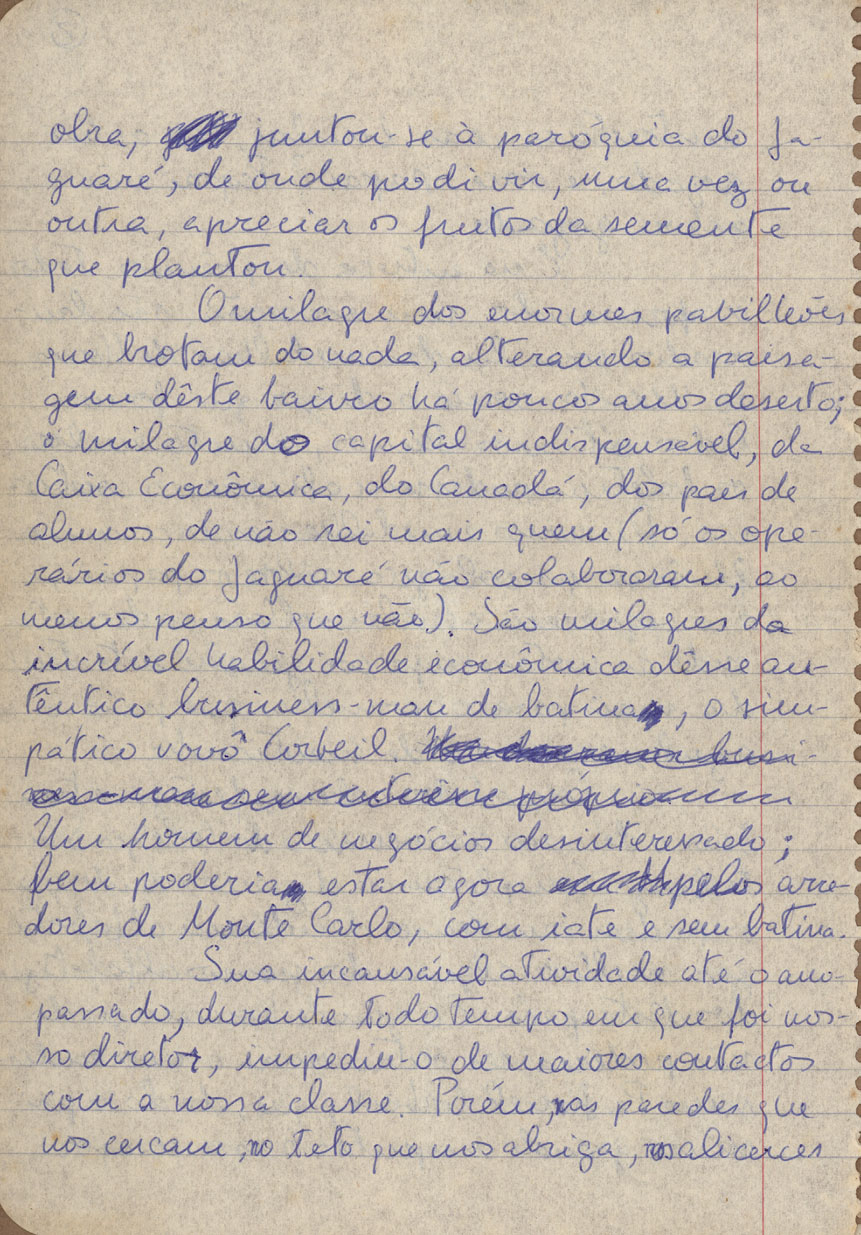 obra, juntou-se à paróquia do Ja-
guaré, de onde podi vir, uma vez ou
outra, apreciar os frutos da semente
que plantou.
O milagre dos enormes pavilhões
que brotam do nada, alterando a paisa-
gem dêste bairro há poucos anos deserto;
o milagre do capital indispensável, da
Caixa Econômica, do Canadá, dos pais de
alunos, de não sei mais quem (só os ope-
rários do Jaguaré não colaboraram, ao
menos penso que não). São milagres da
incrível habilidade econômica dêsse au-
têntico business-man de batina, o sim-
pático vovô Corbeil.
Um homem de negócios desinteressado;
bem poderia estar agora pelos arre-
dores de Monte Carlo, com iate e sem batina.
Sua incansável atividade até o ano
passado, durante todo tempo em que foi nos-
so diretor, impediu-o de maiores contactos
com a nossa classe. Porém, nas paredes que
nos cercam, no teto que nos abriga, nos alicerces